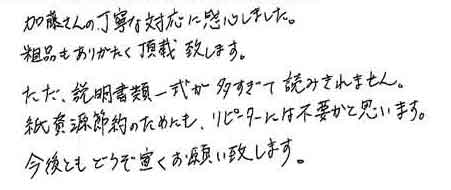 加藤さんの丁寧な対応に感心しました。
粗品もありがたく頂戴致します。
ただ、説明書類一式が多すぎて読みきれません。
紙資源節約のためにも、リピーターには不要かと思います。
今後ともどうぞ宜くお願い致します。